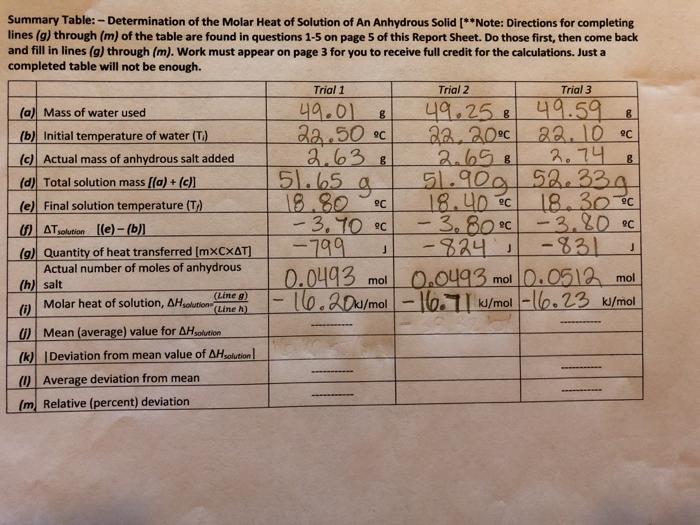 Summary Table: – Determination of the Molar Heat of Solution of An Anhydrous Solid [**Note: Directions for completing
lines (g) through (m) of the table are found in questions 1-5 on page 5 of this Report Sheet. Do those first, then come back
and fill in lines (g) through (m). Work must appear on page 3 for you to receive full credit for the calculations. Just a
completed table will not be enough.
Trial 1 Trial 2 Trial 3
(a) Mass of water used 49.01 g 49.25 g 49.59 g
(b) Initial temperature of water (Ti) 22.50 ºC 22.20 ºC 22.10 ºC
(c) Actual mass of anhydrous salt added 2.63 g 2.65 g 2.74 g
(d) Total solution mass [(a) + (c)] 51.65 g 51.90g 52.33g
(e) Final solution temperature (Tf) 18.80 ºC 18.40 ºC 18.30 ºC
(f) ΔTsolution [(e) – (b)] -3.70 ºC -3.80 ºC -3.80 ºC
(g) Quantity of heat transferred [m×C×ΔT] -799 J -824 J -831 J
Actual number of moles of anhydrous
(h) salt 0.0493 mol 0.0493 mol 0.0512 mol
(i) Molar heat of solution, ΔHsolution= (Line g) / (Line h) -16.20 kJ/mol -16.71 kJ/mol -16.23 kJ/mol
(j) Mean (average) value for ΔHsolution ---------- ----------
(k) |Deviation from mean value of ΔHsolution|
(l) Average deviation from mean ---------- ----------
(m) Relative (percent) deviation ---------- ----------